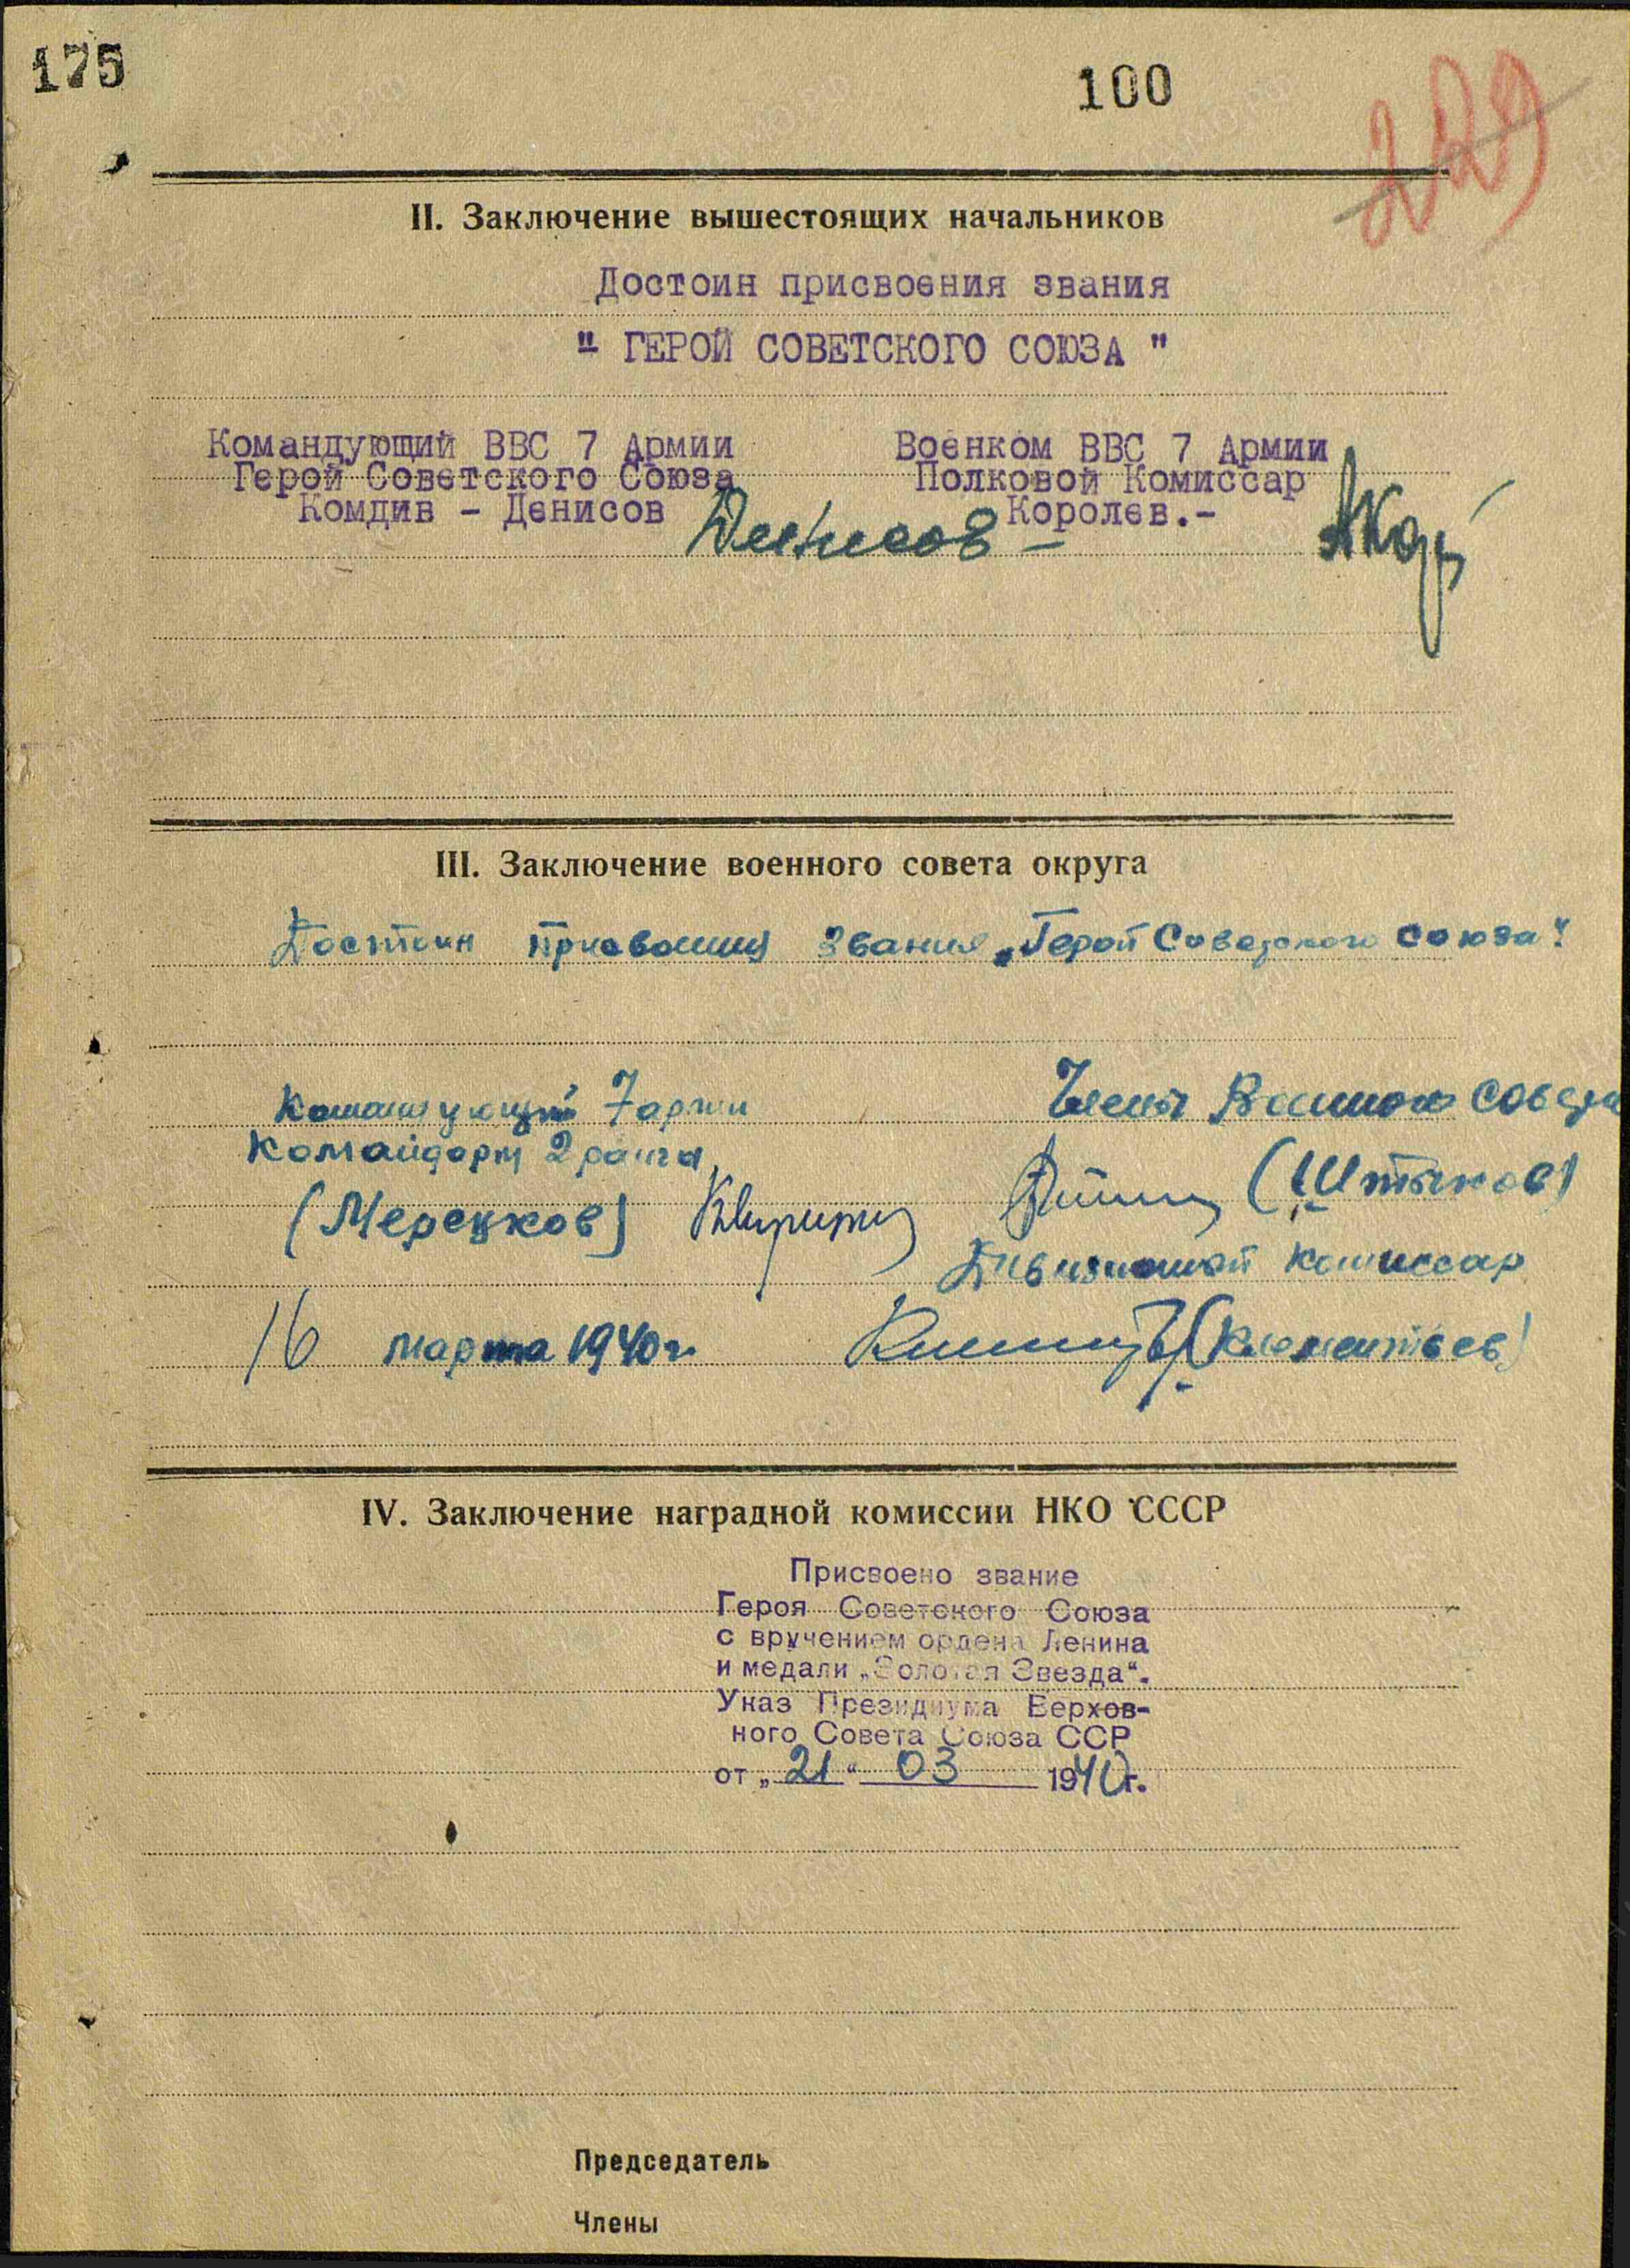 175
100
229
II. Заключение вышестоящих начальников
Достоин присвоения звания
" ГЕРОЙ СОВЕТСКОГО СОЮЗА "
Командующий ВВС 7 Армии Военком ВВС 7 Армии
Герой Советского Союза Полковой Комиссар
Комдив - Денисов Королев.-
Денисов
III. Заключение военного совета округа
Достоин присвоения звания „Герой Советского Союза".
Командующий 7 армии Члены Военного Совета
Командарм 2 ранга
(Мерецков) (Штыков)
Дивизионный комиссар
16 марта 1940 г. (Клементьев)
IV. Заключение наградной комиссии НКО СССР
Присвоено звание
Героя Советского Союза
с вручением ордена Ленина
и медали „Золотая Звезда".
Указ Президиума Верхов-
ного Совета Союза ССР
от „21" 03 1940г.
Председатель
Члены